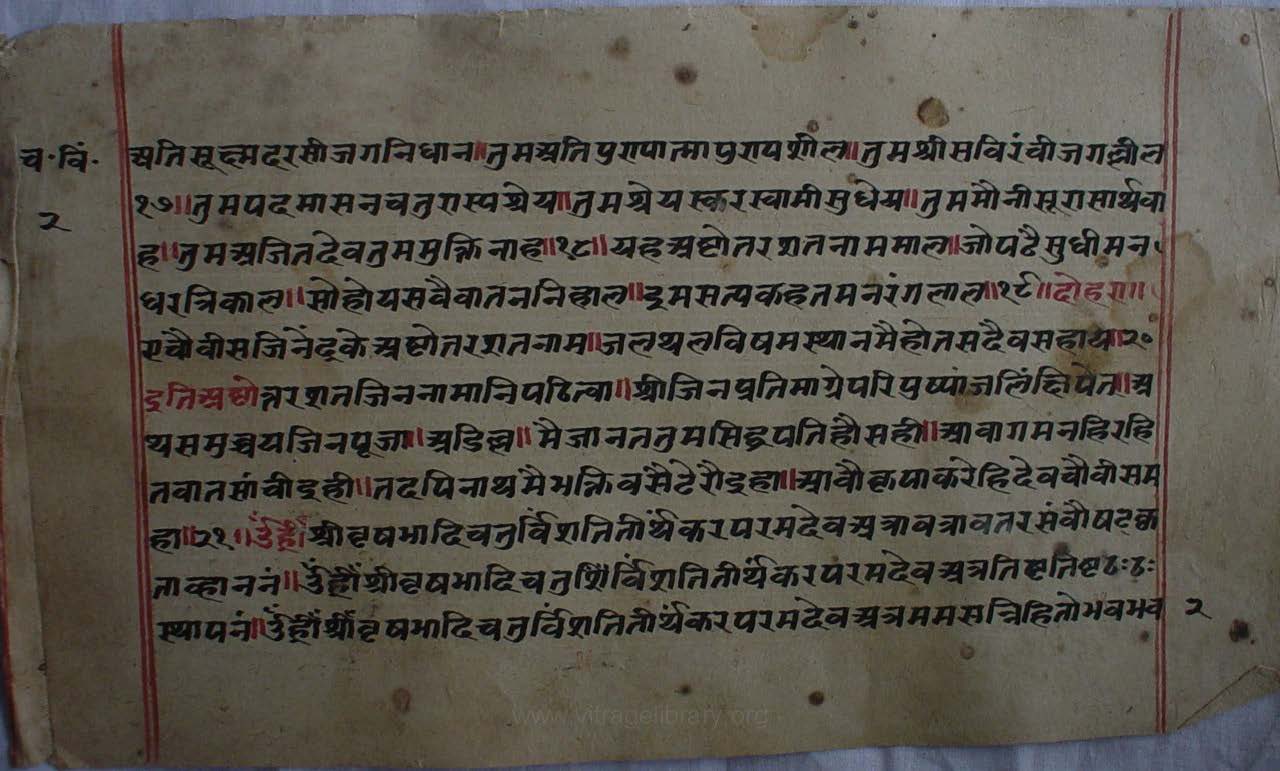 च·विं· अतिसूक्ष्मदरसीजगनिधान॥तुमअतिपुरापात्मापुरापशील॥तुमश्रीसविरंचीजगछील
२ १७॥तुमपदमासनचतुरास्पश्रेय॥तुमश्रेयस्करस्वामीसुधेय॥तुममौनीसूरासार्थवा
ह॥तुमअजितदेवतुममुक्तिनाह॥१८॥यहअष्टोतरशतनाममाल॥जोपढैसुधीमन
धरत्रिकाल॥सोहोयसवैवातननिहाल॥इमसत्यकहतमनरंगलाल॥१९॥दोहरा॥
एचौवीसजिनेंदकेअष्टोतरशतनाम॥जलथलविषमस्थानमैहोतसदैवसहाय॥२०
इतिअष्टोत्तरशतजिननामानिपठित्वा॥श्रीजिनप्रतिमाग्रेपरिपुष्पांजलिंक्षिपेत्॥अ
थसमुच्चयजिनपूजा॥अडिल्ल॥मैजानततुमसिद्धपतिहौसही॥आवागमनहिरहि
तवातसांचीइही॥तदपिनाथमैभक्तिवसैटेरौइहा॥आवौकृपाकरेहिदेवचौवीसम
हा॥२१॥ॐह्रीँश्रीवृषभादिचतुर्विंशतितीर्थंकरपरमदेवअत्रावत्रावतरसंवौषट्क
ताव्हाननं॥ॐह्रीँश्रीवृषभादिचतुर्विंशतितीर्थंकरपरमदेवअत्रतिष्टतिष्टठःठः
स्थापनं॥ॐह्रीँश्रीवृषभादिचतुर्विंशतितीर्थंकरपरमदेवअत्रममसन्निहितोभवभव २
www.vitragelibrary.org